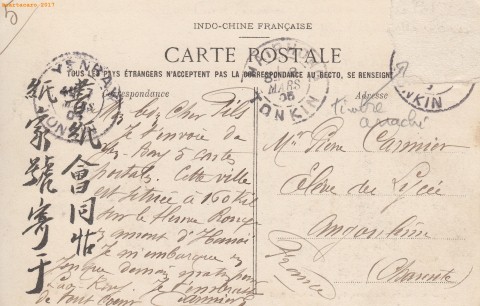 Quartenaro 2017
5
INDO-CHINE FRANÇAISE
CARTE POSTALE
TOUS LES PAYS ÉTRANGERS N'ACCEPTENT PAS LA CORRESPONDANCE AU RECTO, SE RENSEIGNE
Correspondance
Adresse
TONKIN
MARS
TONKIN
Timbre
arraché
Mon Cher Fils
Je t'envoie de
Yen-Bay 5 cartes
postales. Cette ville
est située à 160 Kil
sur le fleuve Rouge
en amont d'Hanoï
Je m'embarque
demain matin pour
Lao Kay. Je t'embrasse
de tout coeur
Mr Pierre Carmier
Elève de Lycée
Angoulême
Charente
France
書紙會同帖
紙家號寄于